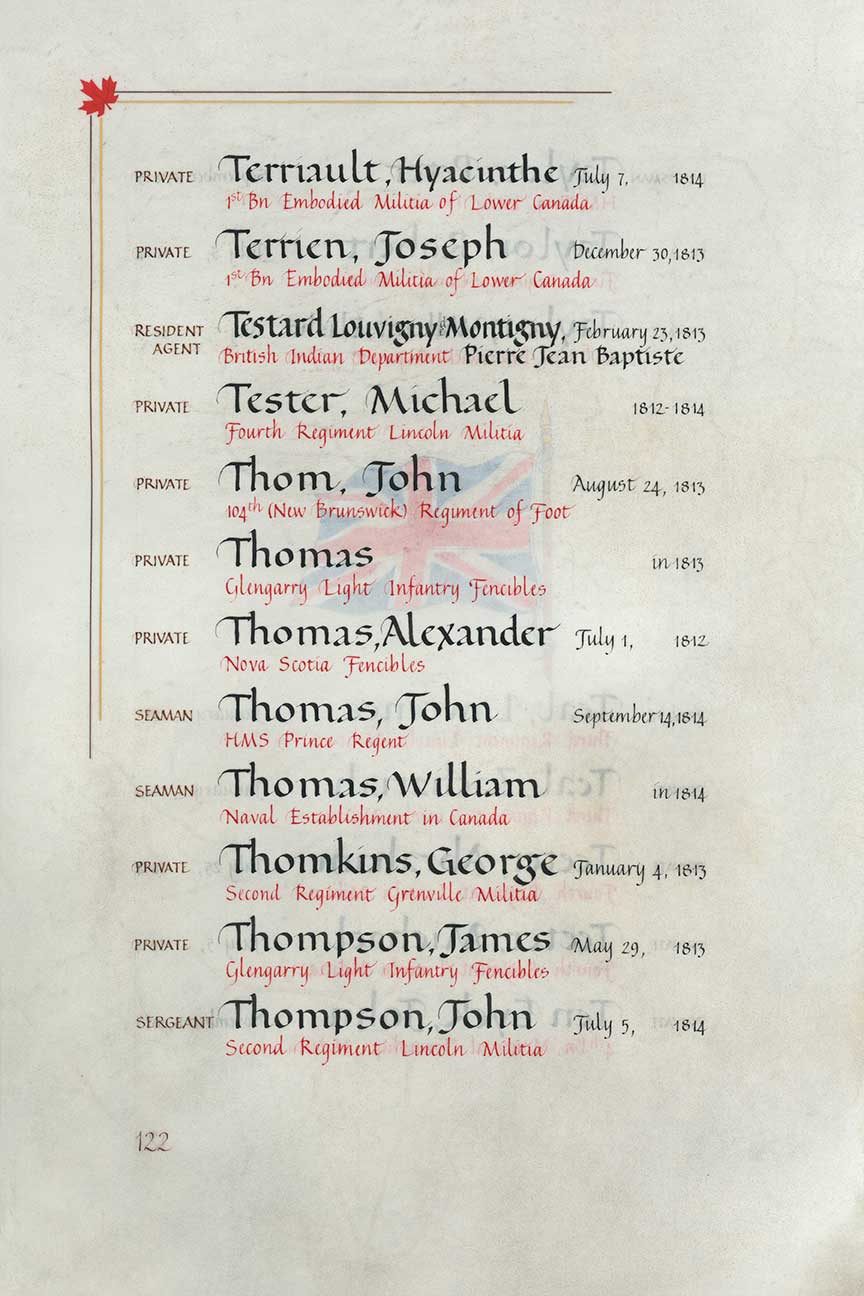 PRIVATE Terriault, Hyacinthe July 7, 1814
1st Bn Embodied Militia of Lower Canada
PRIVATE Terrien, Joseph December 30, 1813
1st Bn Embodied Militia of Lower Canada
RESIDENT AGENT Testard Louvigny Montigny, February 23, 1813
British Indian Department Pierre Jean Baptiste
PRIVATE Tester, Michael 1812-1814
Fourth Regiment Lincoln Militia
PRIVATE Thom, John August 24, 1813
104th (New Brunswick) Regiment of Foot
PRIVATE Thomas in 1813
Glengarry Light Infantry Fencibles
PRIVATE Thomas, Alexander July 1, 1812
Nova Scotia Fencibles
SEAMAN Thomas, John September 14, 1814
HMS Prince Regent
SEAMAN Thomas, William in 1814
Naval Establishment in Canada
PRIVATE Thomkins, George January 4, 1813
Second Regiment Grenville Militia
PRIVATE Thompson, James May 29, 1813
Glengarry Light Infantry Fencibles
SERGEANT Thompson, John July 5, 1814
Second Regiment Lincoln Militia
122